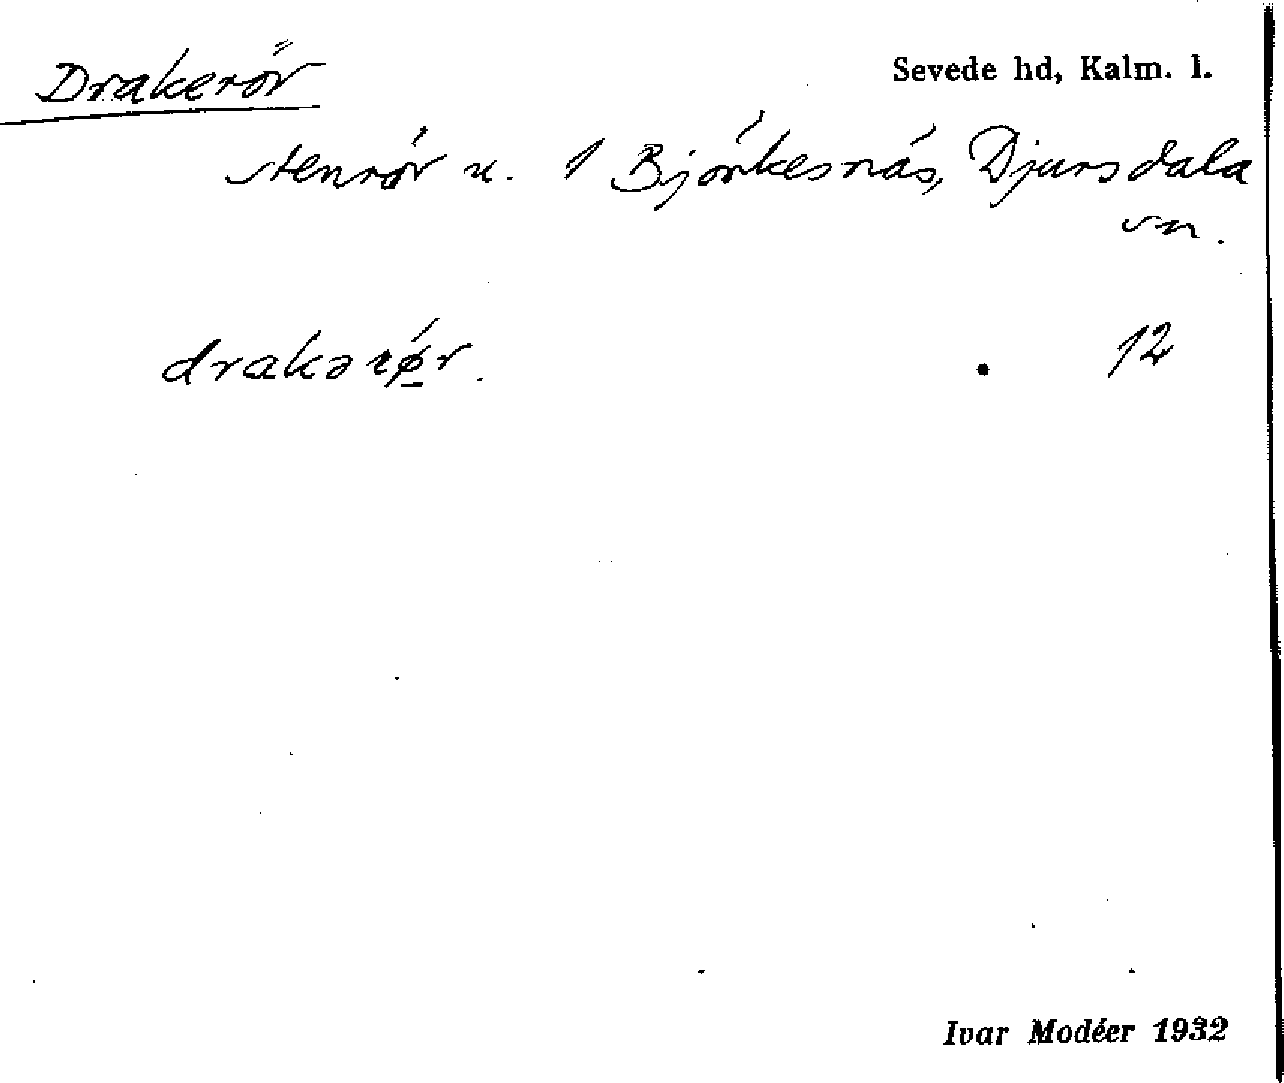 Drakerör
Sevede hd, Kalm. l.
stenrör u. 1 Björkesnäs, Djursdala
sn.
drakərǿ̱r. 12
Ivar Modéer 1932